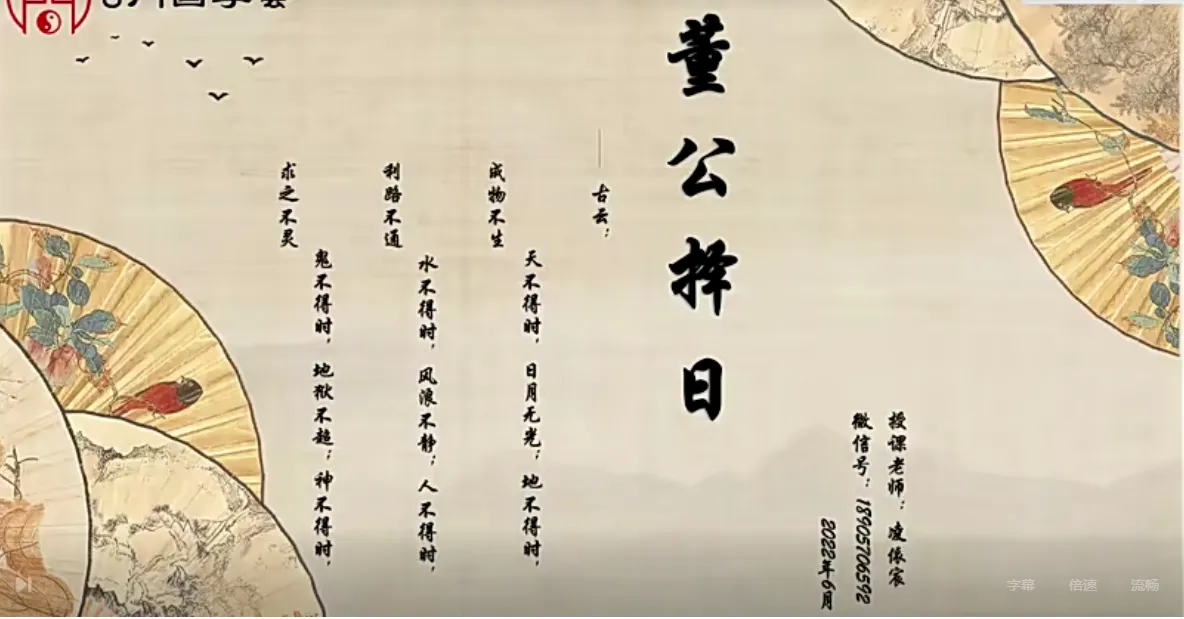 董公择日
——古云：
天不得时，日月无光；地不得时，
成物不生
水不得时，风浪不静；人不得时，
利路不通
鬼不得时，地狱不超；神不得时，
求之不灵
授课老师：凌依宸
微信号：18905706592
2022年6月
字幕 倍速 流畅